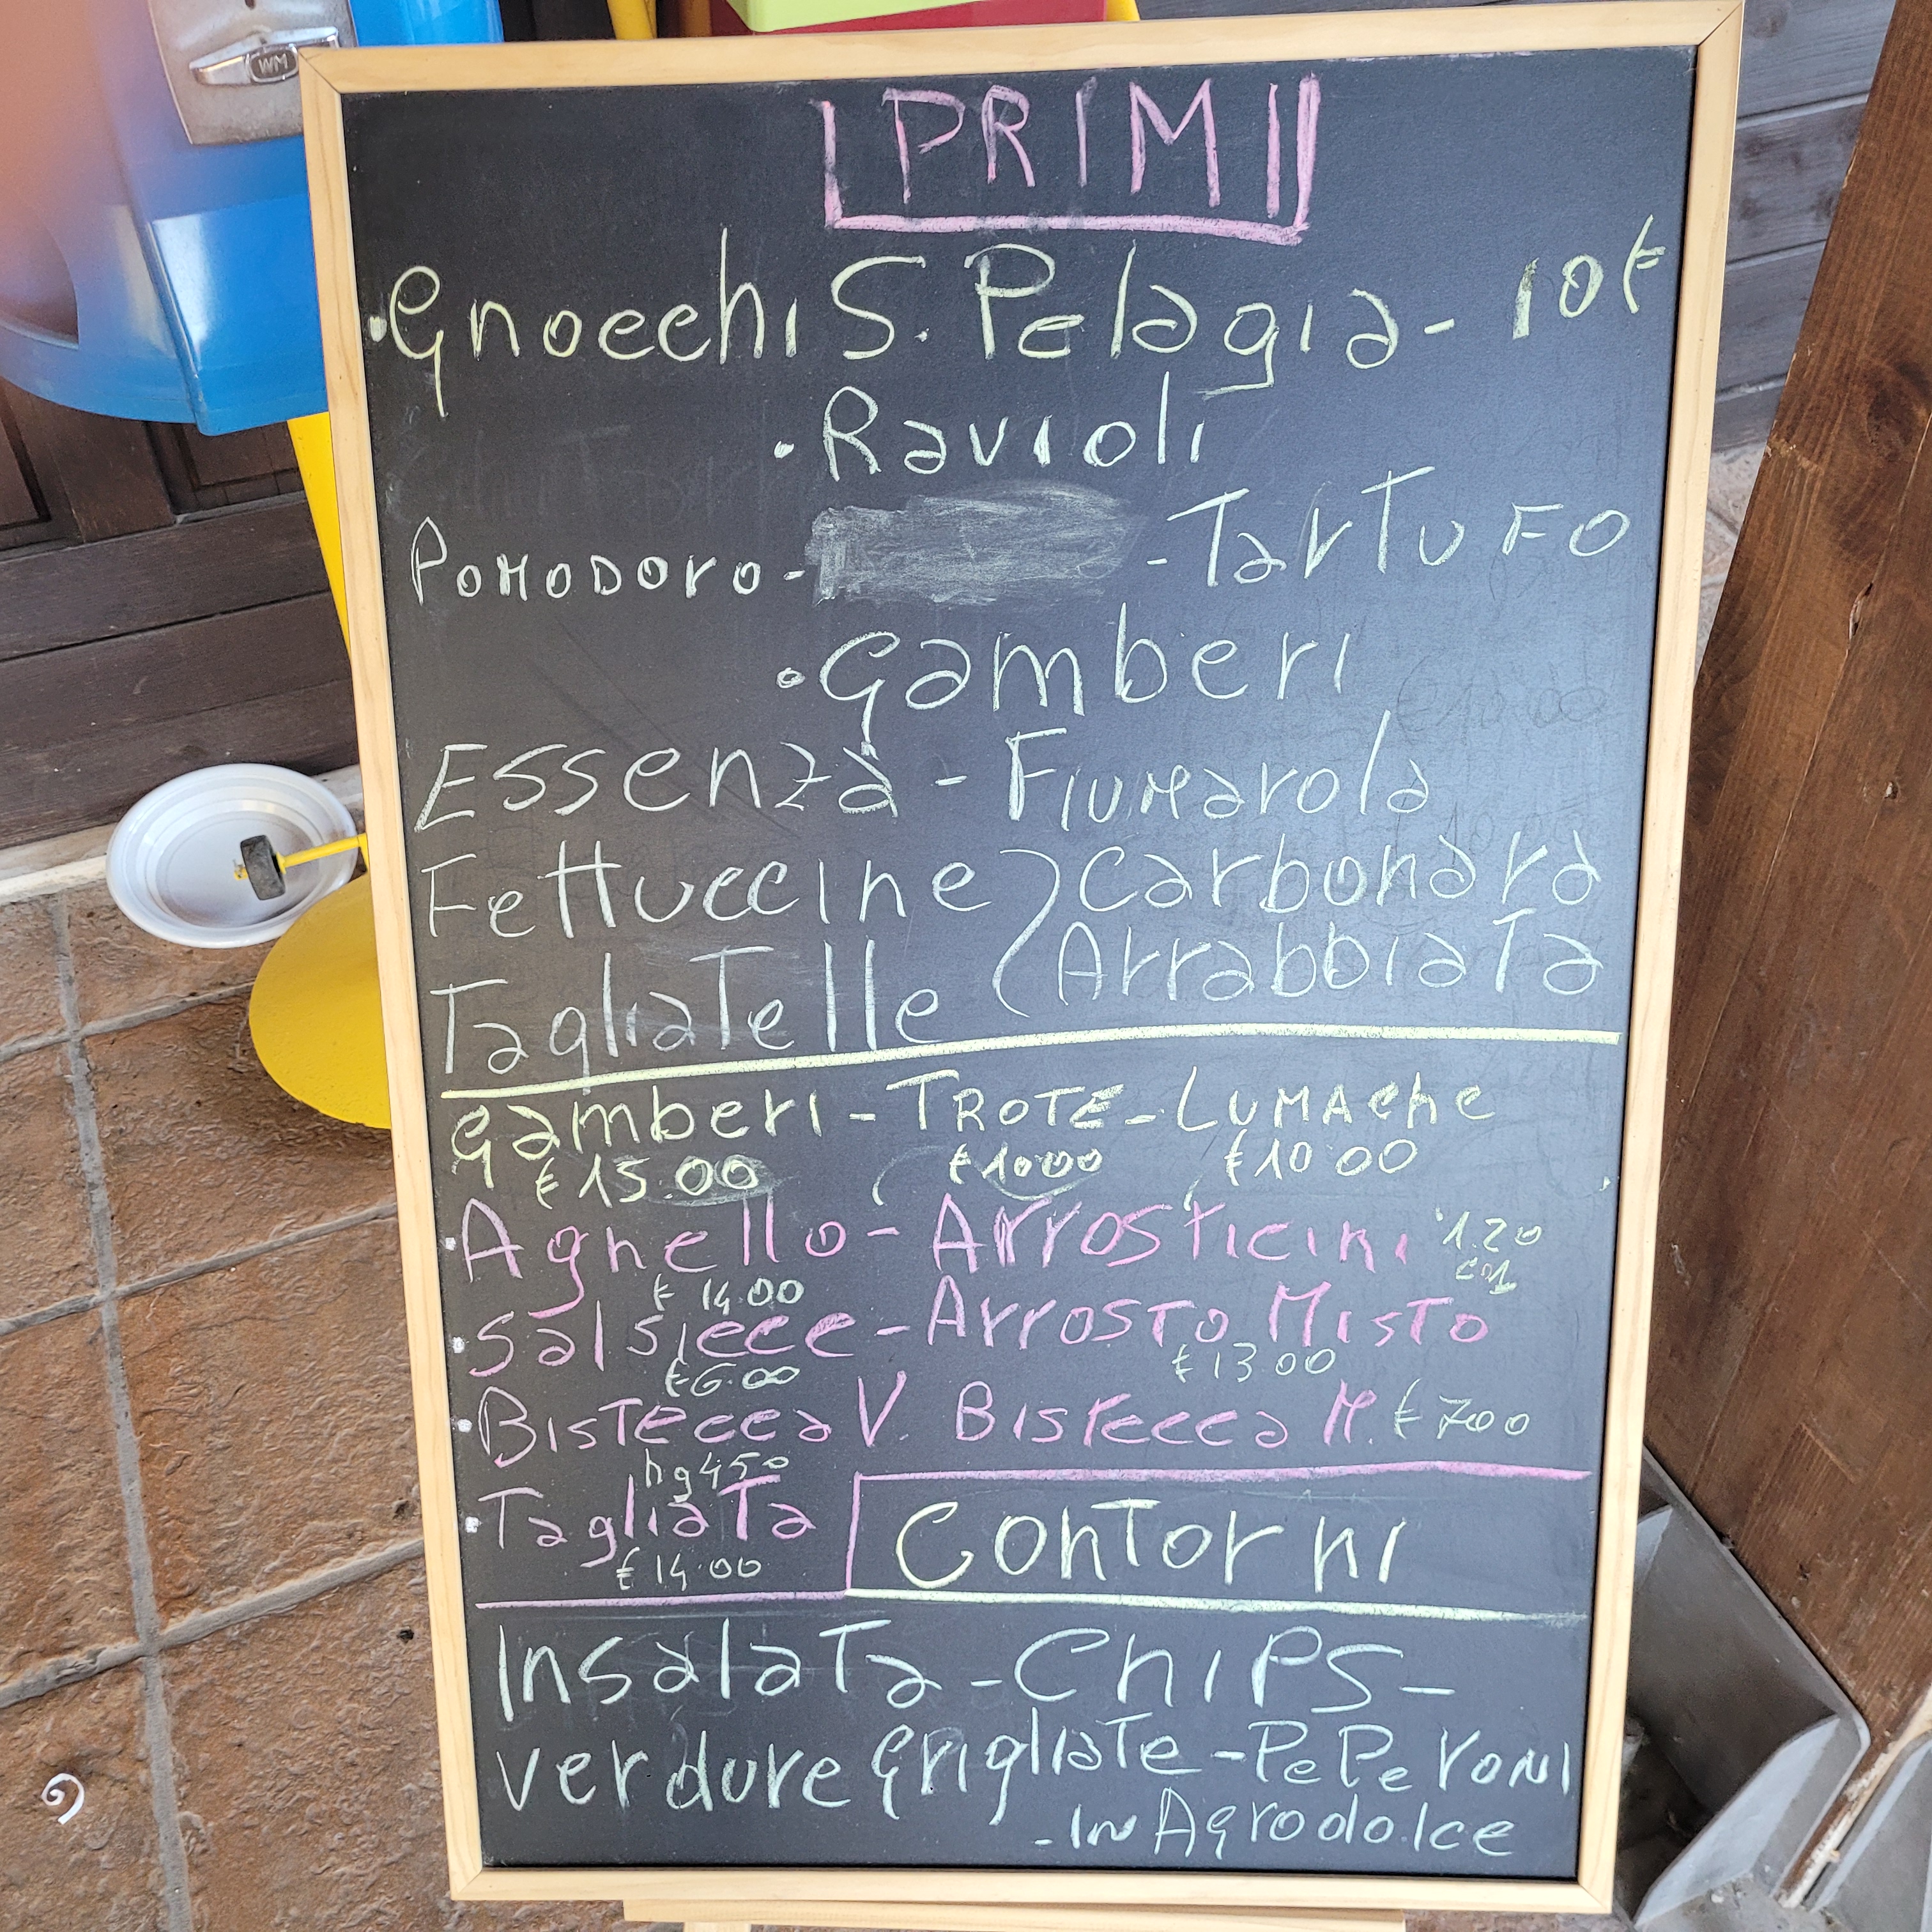 WM
PRIMI
• Gnocchi S. Pelagia - 10€
• Ravioli
Pomodoro - - Tartufo
• Gamberi
Essenza - Fiumarola
Fettuccine ) Carbonara
Tagliatelle ( Arrabbiata
Gamberi - Trote - Lumache
€ 15.00 € 10 00 € 10 00
• Agnello - Arrosticini 1.20
€ 14.00
• Salsicce - Arrosto Misto
€ 6.00 € 13.00
• Bistecca V. Bistecca M. € 700
hg 4,50
• Tagliata
€ 14.00
Contorni
Insalata - Chips -
verdure grigliate - Peperoni
- in Agrodolce